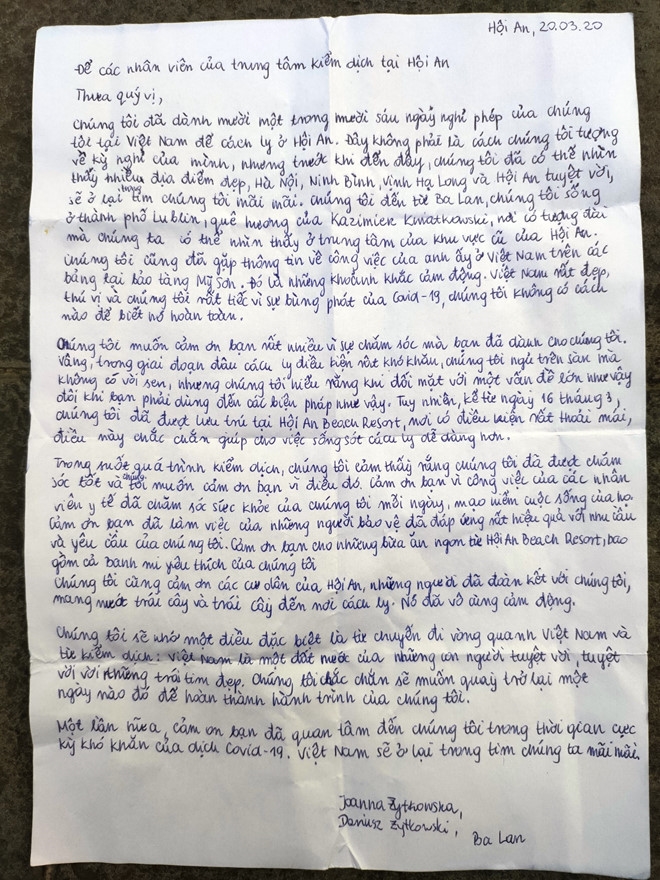 Hội An, 20.03.20
Để các nhân viên của trung tâm kiểm dịch tại Hội An
Thưa quý vị,
Chúng tôi đã dành mười một trong mười sáu ngày nghỉ phép của chúng
tôi tại Việt Nam để cách ly ở Hội An. Đây không phải là cách chúng tôi tưởng
về kỳ nghỉ của mình, nhưng trước khi đến đây, chúng tôi đã có thể nhìn
thấy nhiều địa điểm đẹp, Hà Nội, Ninh Bình, Vịnh Hạ Long và Hội An tuyệt vời,
sẽ ở lại trong tim chúng tôi mãi mãi. Chúng tôi đến từ Ba Lan, chúng tôi sống
ở thành phố Lublin, quê hương của Kazimier Kwiatkowski, nơi có tượng đài
mà chúng ta có thể nhìn thấy ở trung tâm của khu vực cũ của Hội An.
Chúng tôi cũng đã gặp thông tin về công việc của anh ấy ở Việt Nam trên các
bảng tại bảo tàng Mỹ Sơn. Đó là những khoảnh khắc cảm động. Việt Nam rất đẹp,
thú vị và chúng tôi rất tiếc vì sự bùng phát của Covid-19, chúng tôi không có cách
nào để biết nó hoàn toàn.
Chúng tôi muốn cảm ơn bạn rất nhiều vì sự chăm sóc mà bạn đã dành cho chúng tôi.
Vâng, trong giai đoạn đầu cách ly điều kiện rất khó khăn, chúng tôi ngủ trên sàn mà
không có vòi sen, nhưng chúng tôi hiểu rằng khi đối mặt với một vấn đề lớn như vậy
đôi khi bạn phải dùng đến các biện pháp như vậy. Tuy nhiên, kể từ ngày 16 tháng 3,
chúng tôi đã được lưu trú tại Hội An Beach Resort, nơi có điều kiện rất thoải mái,
điều này chắc chắn giúp cho việc sống sót cách ly dễ dàng hơn.
Trong suốt quá trình kiểm dịch, chúng tôi cảm thấy rằng chúng tôi đã được chăm
sóc tốt và chúng tôi muốn cảm ơn bạn vì điều đó. Cảm ơn bạn vì công việc của các nhân
viên y tế đã chăm sóc sức khỏe của chúng tôi mỗi ngày, mạo hiểm cuộc sống của họ.
Cảm ơn bạn đã làm việc của những người bảo vệ đã đáp ứng rất hiệu quả với nhu cầu
và yêu cầu của chúng tôi. Cảm ơn bạn cho những bữa ăn ngon từ Hội An Beach Resort, bao
gồm cả Banh mi yêu thích của chúng tôi
Chúng tôi cũng cảm ơn các cư dân của Hội An, những người đã đoàn kết với chúng tôi,
mang nước trái cây và trái cây đến nơi cách ly. Nó đã vô cùng cảm động.
Chúng tôi sẽ nhớ một điều đặc biệt là từ chuyến đi vòng quanh Việt Nam và
từ kiểm dịch: Việt Nam là một đất nước của những con người tuyệt vời, tuyệt
vời với những trái tim đẹp. Chúng tôi chắc chắn sẽ muốn quay trở lại một
ngày nào đó để hoàn thành hành trình của chúng tôi.
Một lần nữa, cảm ơn bạn đã quan tâm đến chúng tôi trong thời gian cực
kỳ khó khăn của dịch Covid-19. Việt Nam sẽ ở lại trong tim chúng ta mãi mãi.
Joanna Żytkowska,
Dariusz Żytkowski,
Ba Lan